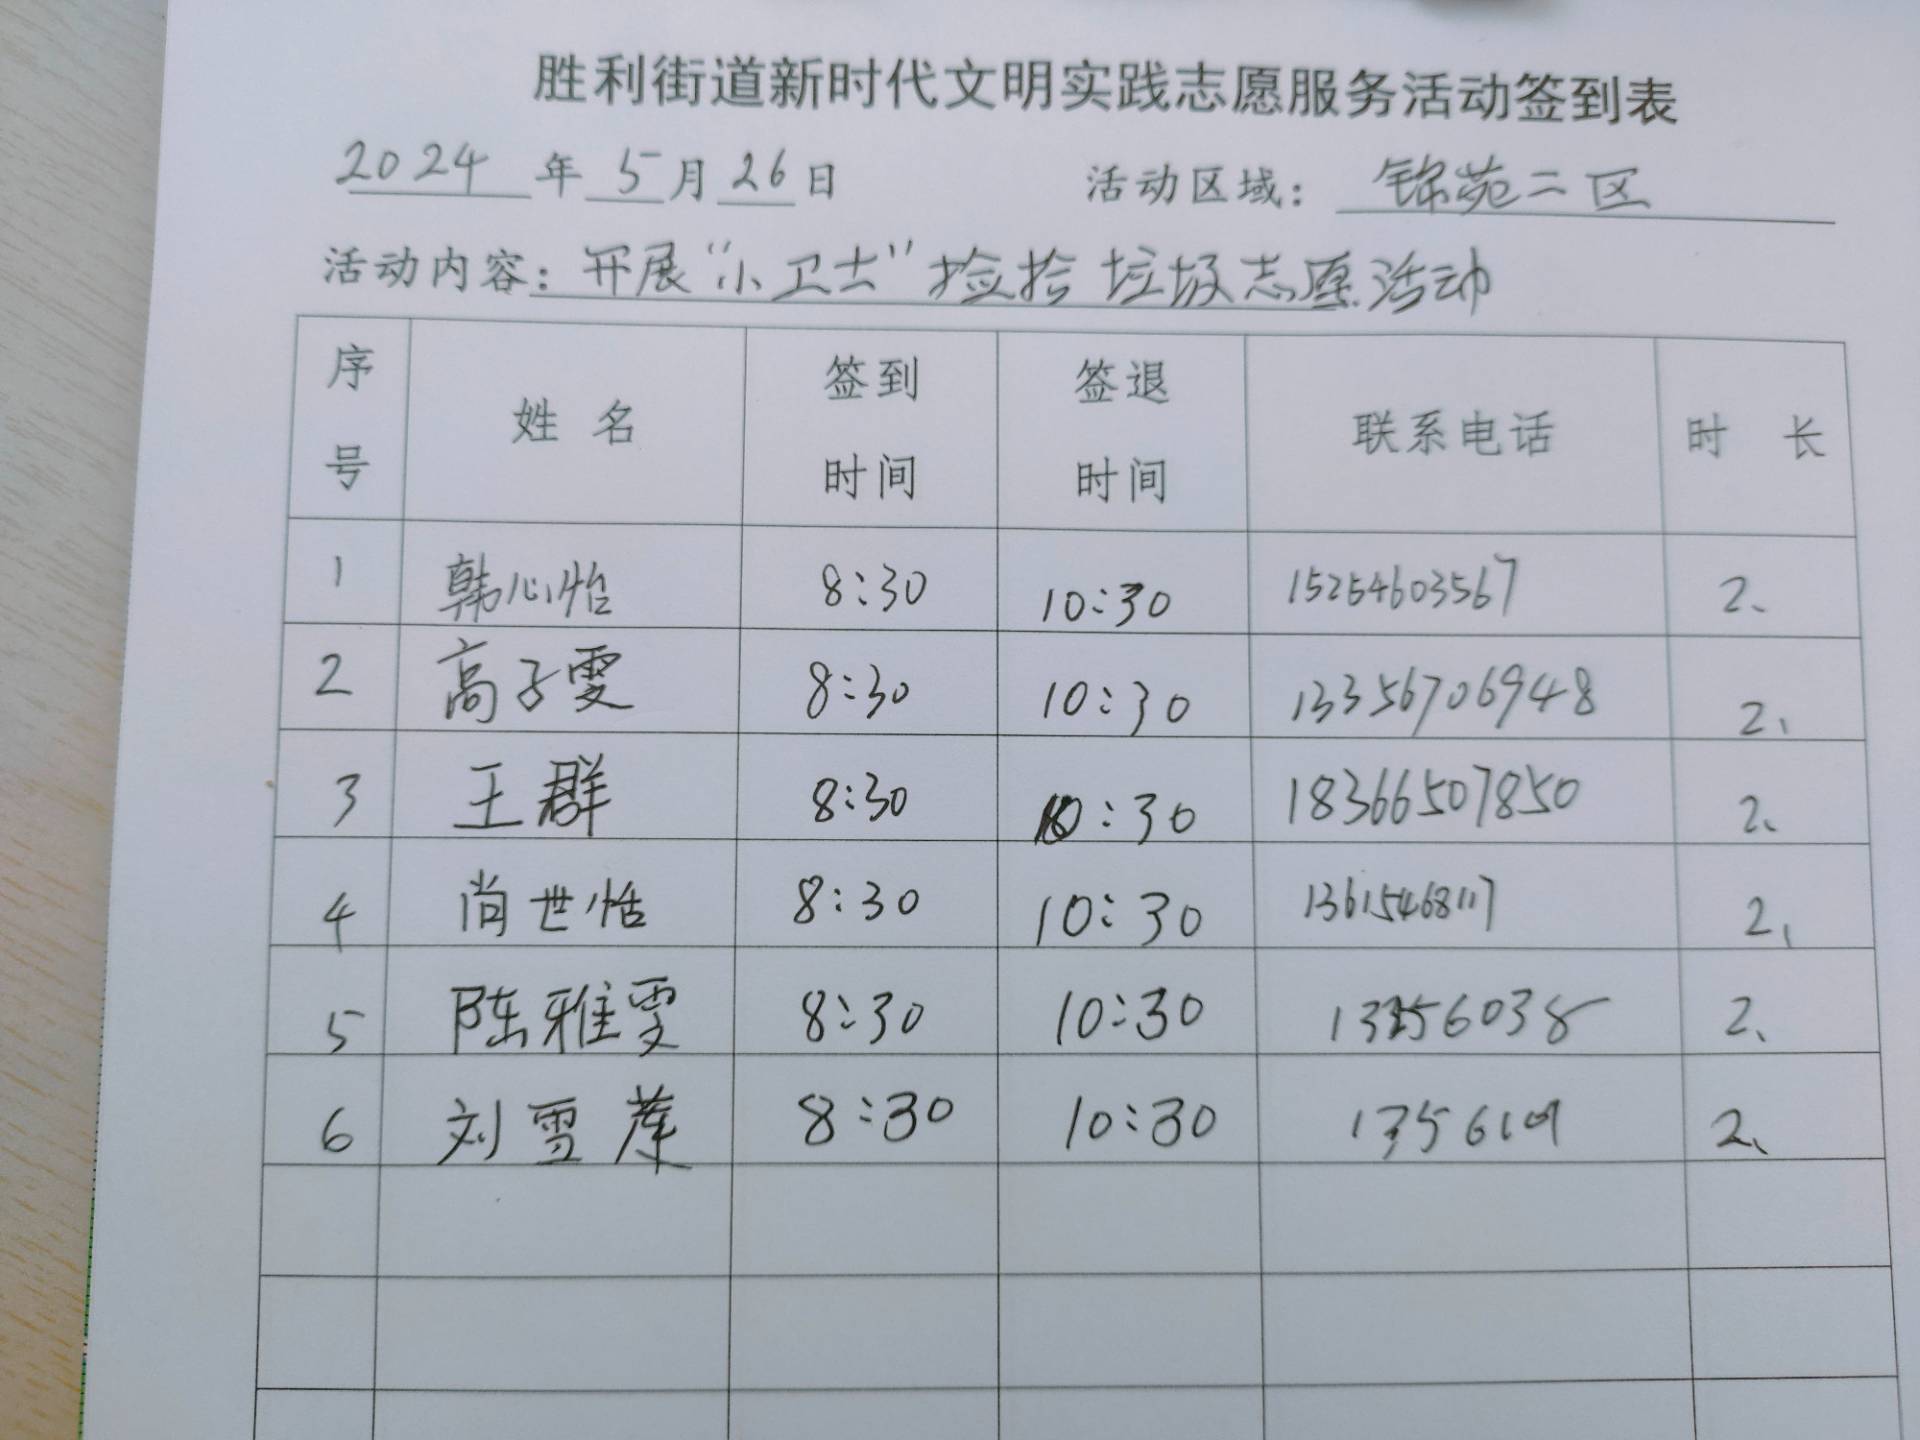 胜利街道新时代文明实践志愿服务活动签到表
2024年5月26日 活动区域：锦苑二区
活动内容：开展“小卫士”捡拾垃圾志愿活动
序号 姓名 签到时间 签退时间 联系电话 时长
1 韩心怡 8:30 10:30 15254603567 2、
2 高子雯 8:30 10:30 13356706948 2、
3 王群 8:30 10:30 18366507850 2、
4 尚世恬 8:30 10:30 13615468117 2、
5 陈雅雯 8:30 10:30 2、
6 刘雪 8:30 10:30 2、